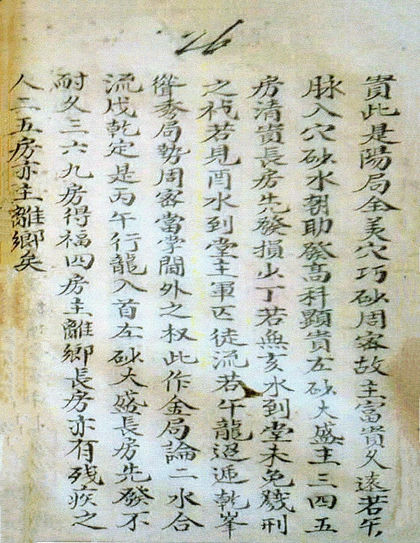 26
貴此是陽局全美穴巧砂周密故主富貴久遠若午
脉入穴砂水朝助發髙科顕貴左砂大盛主三四五
房清貴長房先發損少丁若無亥水到堂未免賤刑
之若見酉水到堂主軍匹徒流若午龍迢遞乾峯
聳秀局勢周密當掌閫外之权此作金局論二水合
流戊乾定是丙午行龍入首左砂大盛長房先發不
耐久三六九房得福四房主離鄉長房亦有残疾之
人二五房亦主離鄉矣